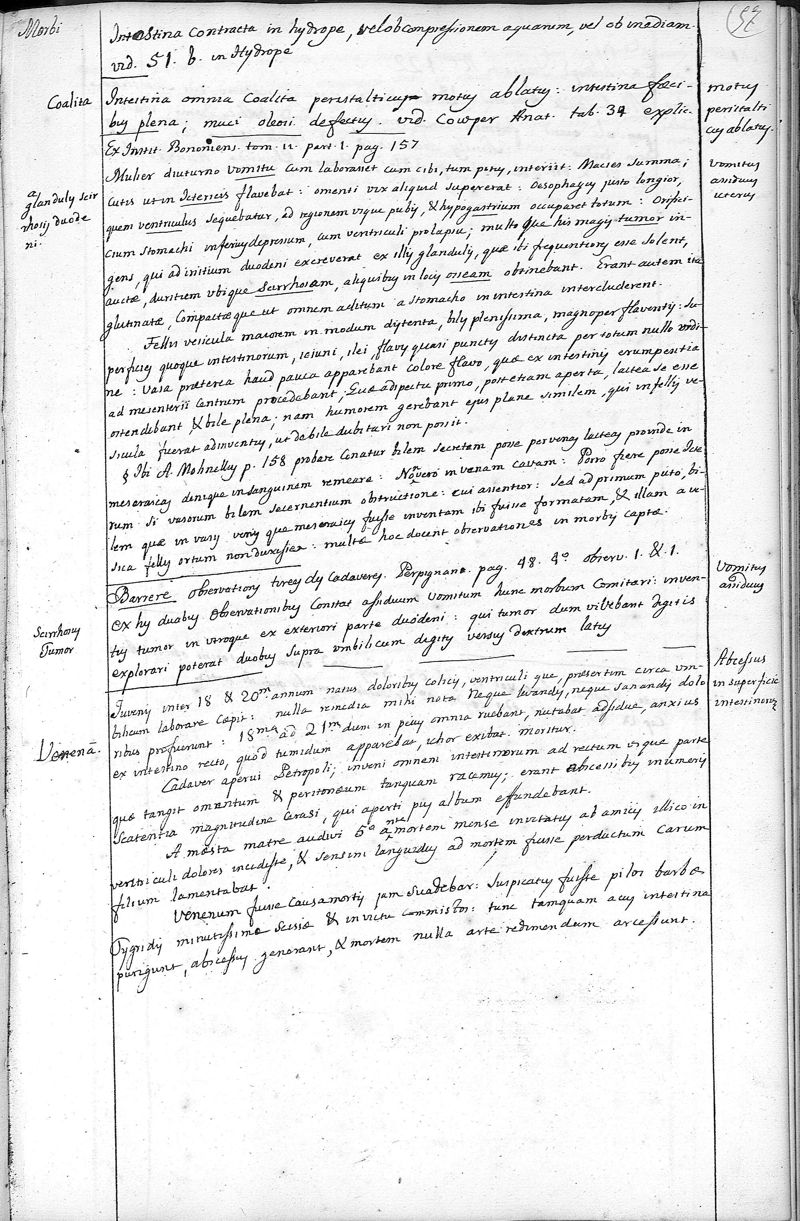 Morbi
52
Intestina Contracta in hydrope, vel ob compressionem aquarum, vel ob inediam.
vid. 51. b. in Hydrope
Coalita
Intestina omnia Coalita peristalticus motus ablatus: intestina fæci-
bus plena; muci oleosi defectus. vid. Cowper Anat. tab. 34 explic.
motus
peristalti
cus ablatus.
Ex Instit. Bononiens. tom. 11. part. 1. pag. 157
Mulier diuturno vomitu cum laborasset cum cibi, tum potus, interiit: Macies summa;
Cutis ut in Ictericis flavebat: omenti vix aliquid supererat: Oesophagus justo longior,
quem ventriculus sequebatur, ad regionem usque pubis, & hypogastrium occuparet totum: Orifi-
cium stomachi inferius depressum, cum ventriculi prolapsu; multo que his magis tumor in-
gens, qui ad initium duodeni excreverat ex illis glandulis, quæ ibi frequentiores esse solent,
auctæ, duritiem ubique scirrhosam, aliquibus in locis osseam obtinebant. Erant autem ita
glutinatæ, Compactæque ut omnem aditum a stomacho in intestina intercluderent.
a
glandulis scir
rhosis duode
ni.
vomitus
assiduus
uterus
Fellis vesicula maiorem in modum distenta, bilis plenissima, magnoper flaventis: su-
perficies quoque intestinorum, jejuni, ilei, flavis quasi punctis distincta per totum nullo ordi-
ne: Vasa præterea haud pauca apparebant colore flavo, quæ ex intestinis erumpentia
ad mesenterii Centrum procedebant; Quæ adspectu primo, post etiam aperta, lactea se esse
ostendebant & bile plena; nam humorem gerebant ejus plane similem, qui in fellis ve-
sicula fuerat adinventus, ut de bile dubitari non possit.
§ Ibi A. p. 158 probare Conatur bilem secretam posse per venas lacteas provide in
meseraicas denique in sanguinem remeare: Non vero in venam cavam: Porro fiere posse Icte
rum. Si vasorum bilem secernentium obstructione: cui assentior: Sed ad primum puto, bi-
lem quæ in vasis venis que meseraicis fuisse inventam ibi fuisse formatam, & illam a ve-
sica fellis ortum non duxisse: multæ hoc docent observationes in morbis captæ.
Barrere observations tirees des Cadaveres. Perpignan. pag. 48. 4o observ. 1. & 1.
Ex his duabus observationibus Constat assiduum vomitum hunc morbum Comitari: inven-
tus tumor in utroque ex exteriori parte duodeni: qui tumor dum vivebant digitis
explorari poterat duobus supra umbilicum digitis versus dextrum latus
Vomitus
assiduus
Scirrhosus
Tumor
Juvenis inter 18 & 20m annum natus doloribus colicis, ventriculi que, præsertim circa um-
bilicum laborare cæpit: nulla remedia mihi nota neque levandis, neque sanandis dolo
ribus profuerunt: 18m ad 21m dum in peius omnia ruebant, nutabat assidue, anxius
ex intestino recto, quod tumidum apparebat, ichor exibat. moritur.
Abcessus
in superficie
intestinorum
Venenā.
Cadaver aperui Petropoli; inveni omnem intestinorum ad rectum usque parte
quæ tangit omentum & peritonæum tanquam racemus; erant abcessibus innumeris
scatentia magnitudine Cerasi, qui aperti pus album effundebant.
A mæsta matre audivi 5o ante mortem mense invitatus ab amicis illico in
ventriculi dolores incidisse, & sensim languidus ad mortem fuisse perductum Carum
filium lamentabat.
Venenum fuisse Causa mortis jam suadebar: suspicatus fuisse pilos barbæ
Tygridis minutissime scissæ & in victu commistos: tunc tamquam acus intestina
purigunt, abscessus generant, & mortem nulla arte redimendum arcessunt.